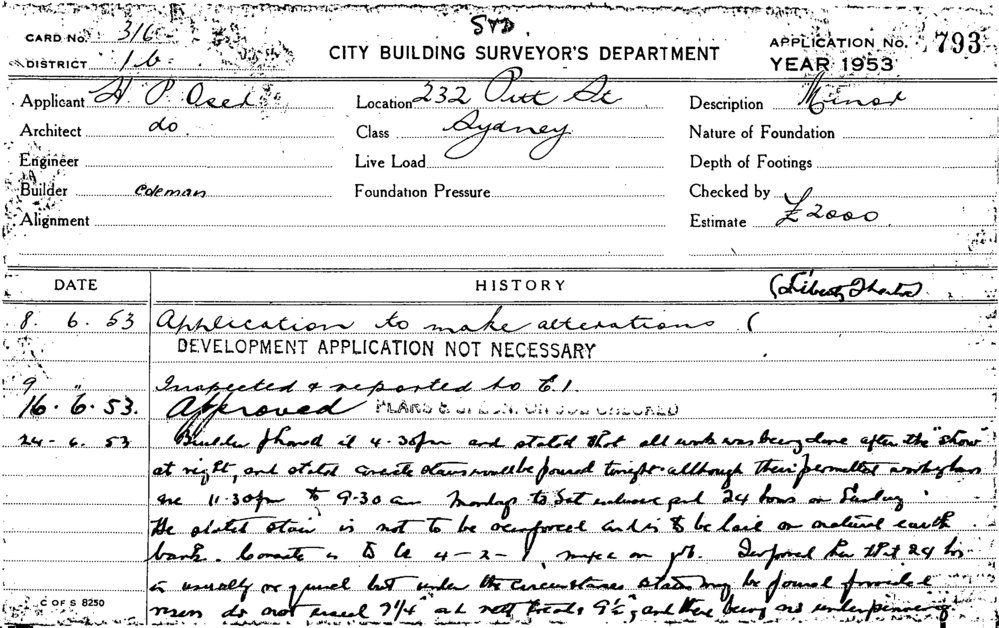 STD.
CARD No. 316
CITY BUILDING SURVEYOR'S DEPARTMENT
APPLICATION No. 793
DISTRICT 1b
YEAR 1953
Applicant H. P. Oser Location 232 Pitt St Description Minor
Architect do Class Sydney Nature of Foundation
Engineer Live Load Depth of Footings
Builder Coleman Foundation Pressure Checked by
Alignment Estimate £2000
DATE HISTORY (Liberty Theatre)
8. 6. 53 Application to make alterations (
DEVELOPMENT APPLICATION NOT NECESSARY
9 " Inspected & reported to
16. 6. 53. Approved PLANS & SPECN. ON JOB CHECKED
24. 6. 53 Builder phoned at 4.30pm and stated that all work was being done after the "show"
at night, and stated concrete stairs would be poured tonight although their permitted working hours
are 11.30pm to 9.30 am Mondays to Sat inclusive and 24 hours on Sunday.
He stated stair is not to be reinforced and is to be laid on natural earth
bank. Concrete is to be 4-2-1 mixed on job. Informed him that 24 hrs
is usually required but under the circumstances stairs may be poured provided
risers do not exceed 7¼" and not treads 9½", and there being no underpinning
C OF S 8250